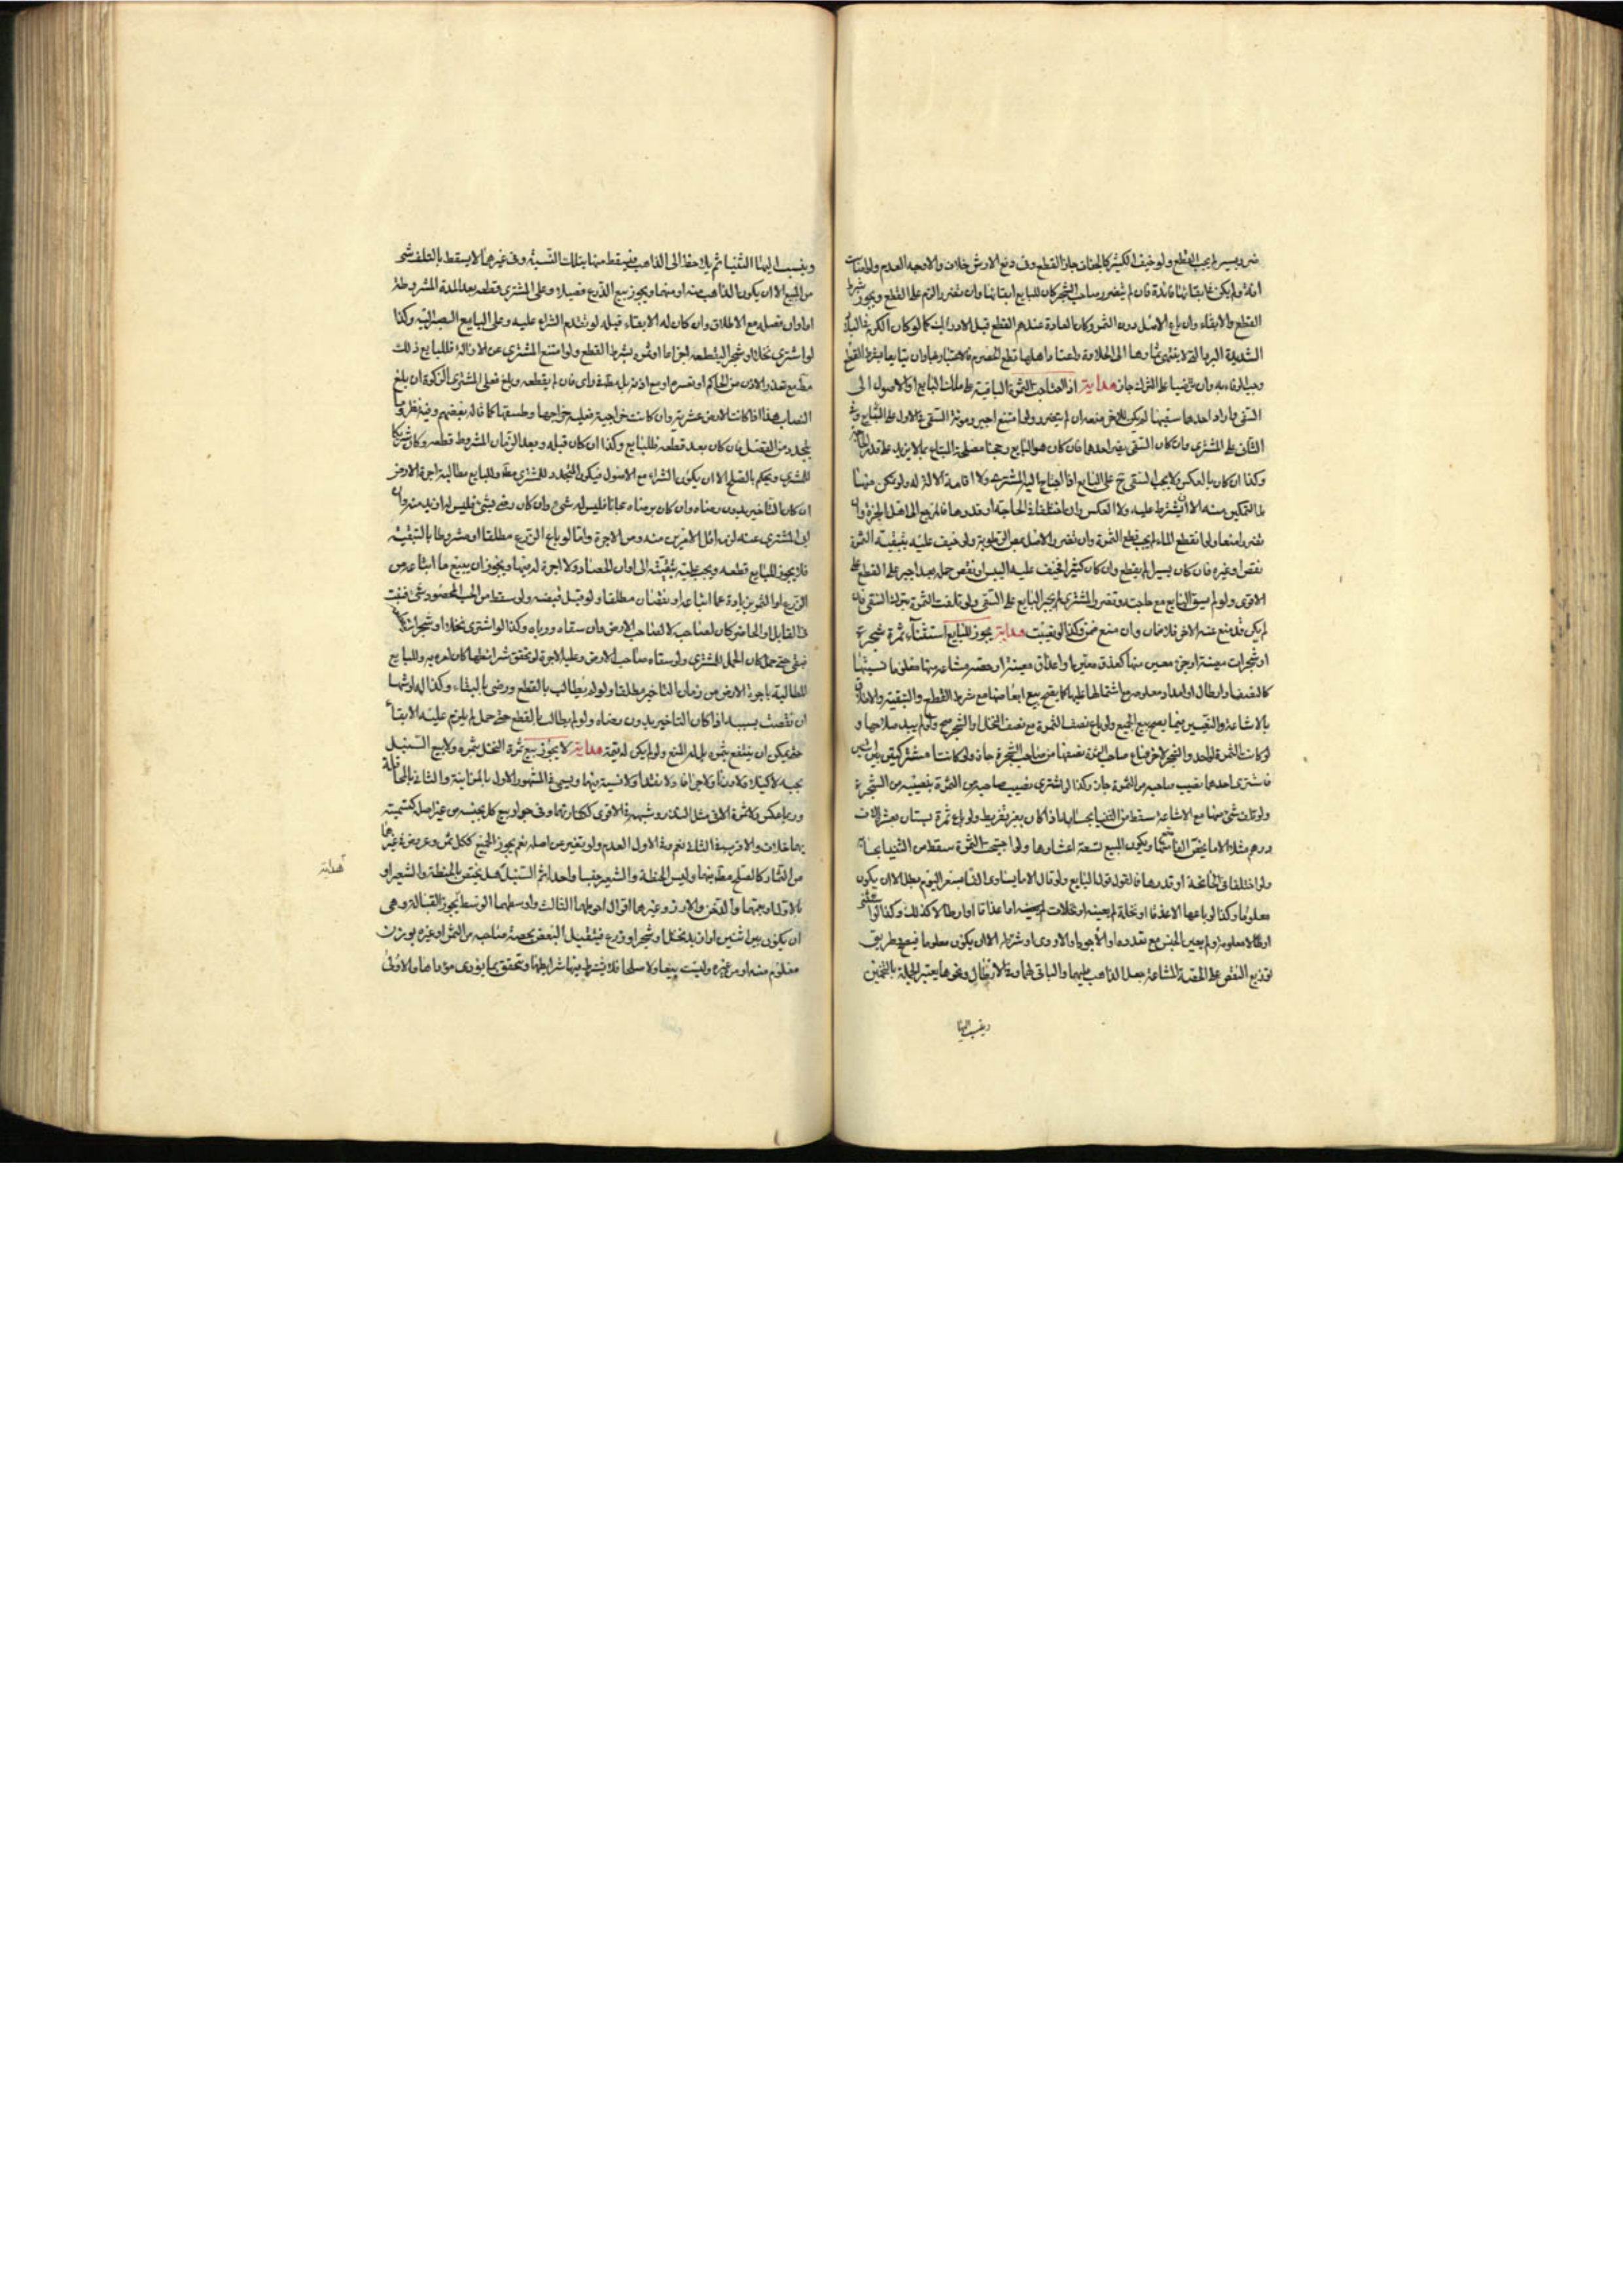 ضرر يسير لم يجب القطع ولو خيف الكثير كالجفاف جاز القطع وفى دفع الارش خلاف والاوجه العدم ولو اصابت
افة ولم يكن فى ابقائها فائدة فان لم يتضرر صاحب الشجر كان للبايع ابقائها وان تضرر الزم على القطع ويجوز شرط
القطع والابقاء وان باع الاصل دون الثمر وكان العادة عندهم القطع قبل الادراك كما لو كان الكرم فى البلاد
الشديدة البرد التى لا ينتهى ثمارها الى الحلاوة واعتاد اهلها قطع الحصرم فالاعتبار بها وان تبايعا بشرط القطع
وجب الوفاء به وان تراضيا على الترك جاز هداية اذا احتاجت الثمرة الباقية على ملك البايع او الاصول الى
السقى فاراد احدهما سقيها لم يكن للاخر منعه ان لم يتضرر ولو امتنع اجبر ومؤنة السقى فى الاول على البايع وفى
الثانى على المشترى وان كان السقى يضر احدهما فان كان هو البايع رجحنا مصلحة المبتاع بما لا يزيد على قدر الحاجة
وكذا ان كان بالعكس ولا يجب السقى ح على البايع اذا احتاج اليه المشترى ولا اقامة الالة له ولو تكن منها
بل التمكين منه الا ان يشترط عليه ولا العكس وان اختلفا فى الحاجة او قدرها فالمرجع الى اهل الخبرة وان
تضررا منعا ولو انقطع الماء لم يجب قطع الثمرة وان تضرر الاصل بمص الرطوبة ولو خيف عليه بتبقية الثمرة
نقص او غيره فان كان يسيرا لم يقطع وان كان كثيرا فخيف عليه اليبس او نقص حمله بعد اجبر على القطع على
الاقوى ولو لم يسق البايع مع حاجته وتضرر المشترى لم يجبر البايع على السقى ولو تلفت الثمرة بترك السقى فان
لم يكن قد منع عنه الاخر فلا ضمان وان منع ضمن وكذا لو تعيبت هداية يجوز للبايع استثناء ثمرة شجرة
او شجرات معينة او جزء معين منها كعذق معين او اعذاق معينة او حصة مشاعة منها معلوما نسبتها
كالنصف او ارطال او امداد معلومة مع اشتمالها عليها كما يصح بيع ابعاضها مع شرط القطع والتبقية والاطلاق
بالاشاعة والتعيين فيما يصح بيع الجميع ولو باع نصف الثمرة مع نصف النخل او الشجر صح ولو لم يبد صلاحها و
لو كانت الثمرة لواحد والشجر لاخر فباع صاحب الثمرة نصفها من صاحب الشجرة جاز ولو كانتا مشتركتين بين اثنين
فاشترى احدهما نصيب صاحبه من الثمرة جاز وكذا لو اشترى نصيب صاحبه من الثمرة بنصيبه من الشجرة
ولو تلف شئ منها مع الاشاعة سقط من الثنيا بحسابه اذا كان بغير تفريط ولو باع ثمرة بستان بعشرة الاف
درهم مثلا الا ما يخص الفا منها صح ويكون المبيع تسعة اعشارها ولو اجتيحت الثمرة سقط من الثنيا بحسابه
ولو اختلفا فى الجائحة او قدرها فالقول قول البايع ولو قال الا ما يساوى الفا بسعر اليوم بطل الا ان يكون
معلوما وكذا لو باعها الا عذقا او نخلة لم يعينه او نخلات لم يعينه اما عذاقا او ارطالا كذلك وكذا لو استثنى
ارطالا معلومة ولم يعين الجنس مع تعدده او الاجود او الاردى او شرط الا ان يكون معلوما فيصح وطريق
توزيع النقص على الحصة المشاعة جعل الذاهب عليهما والباقى لهما وفى الارطال ونحوها يعتبر الجملة بالتخمين
وينسب اليها
وينسب اليها الثنيا ثم يلاحظ الى الذاهب فيسقط منها بتلك النسبة وفى غيرهما لا يسقط بالتلف شئ
من المبيع الا ان يكون الذاهب منه او منها ويجوز بيع الزرع قصيلا وعلى المشترى قطعه بعد المدة المشروطة
او اوان فصله مع الاطلاق وان كان له الابقاء قبله لو تقدم الشراء عليه وعلى البايع الصبر اليه وكذا
لو اشترى نخلا او شجرا ليقطعه اجذاعا او ثمره بشرط القطع ولو امتنع المشترى عن الازالة فللبايع ذلك
مطلقا مع تعذر الاذن من الحاكم او تعسره او مع اذنه بل مطلقا على راى فان لم يقطعه وبلغ فعلى المشترى الزكوة ان بلغ
النصاب هذا اذا كانت الارض عشرية وان كانت خراجية فعليه خراجها وطسقها كما قاله بعضهم وفيه نظر وما
يتجدد من الفضل فان كان بعد قطعه فللبايع وكذا ان كان قبله وبعد الزمان المشروط قطعه وكان شريكا
للمشترى ويحكم بالصلح الا ان يكون الشراء مع الاصول فيكون المتجدد للمشترى مطلقا وللبايع مطالبة اجرة الارض
ان كان التاخير بدون رضاه وان كان برضاه مجانا فليس له شئ وان كان رضى بشئ فليس له ازيد منه وان
ابى المشترى عنه لزمه اقل الامرين منه ومن الاجرة واما لو باع الزرع مطلقا او مشروطا بالتبقية
فلا يجوز للبايع قطعه ويجب عليه تبقيته الى اوان الحصاد ولا اجرة له فيها ويجوز ان يبتيع ما ابتاعه من
الزرع او الثمر بزيادة عما ابتاعه او نقصان مطلقا ولو قبل قبضه ولو سقط من الحب المحصود شئ فنبت
فى القابل او الحاضر كان لصاحبه لا لصاحب الارض وان سقاه ورباه وكذا لو اشترى نخلا او شجرات
فبقى حتى حمل كان الحمل للمشترى ولو سقاه صاحب الارض وعليه الاجرة لو تحقق شرائطها كان امره به وللبايع
المطالبة باجرة الارض من زمان التاخير مطلقا ولو لم يطالب بالقطع ورضى بالبقاء وكذا له ارشها
ان نقصت بسببه اذا كان التاخير بدون رضاه ولو لم يطالب بالقطع حتى حمل لم يلزم عليه الابقاء
حتى يمكن ان ينتفع بثمره بل له المنع ولو لم يكن له قيمة هداية لا يجوز بيع ثمرة النخل بثمره ولا بيع السنبل
بحبه لا كيلا ولا وزنا ولا جزافا ولا نقدا ولا نسية فيهما ويسمى فى المشهور الاول بالمزابنة والثانى بالمحاقلة
وربما عكس
بهما خلاف والاقرب فى الثانى نعم وفى الاول العدم ولو تغير عن اصله نعم يجوز الجميع ككل ثمر وعريض فى غيرها
من الثمار كالصلح مطلقا بهما وليس الحنطة والشعير جنسا واحدا ثم السنبل هل يختص بالحنطة والشعير او
بالاول او بهما والدخن والارز وغيرهما اقوال احوطها الثالث واوسطها الوسط يجوز القبالة وهى
ان يكون بين اثنين او ازيد نخل او شجر او زرع فيتقبل البعض بحصة صاحبه من الثمر او غيره بوزن
معلوم منه او من غيره وليست بيعا ولا صلحا فلا يشترط فيها شرائطهما وتتحقق بما يؤدى مؤداها والاولى
هداية